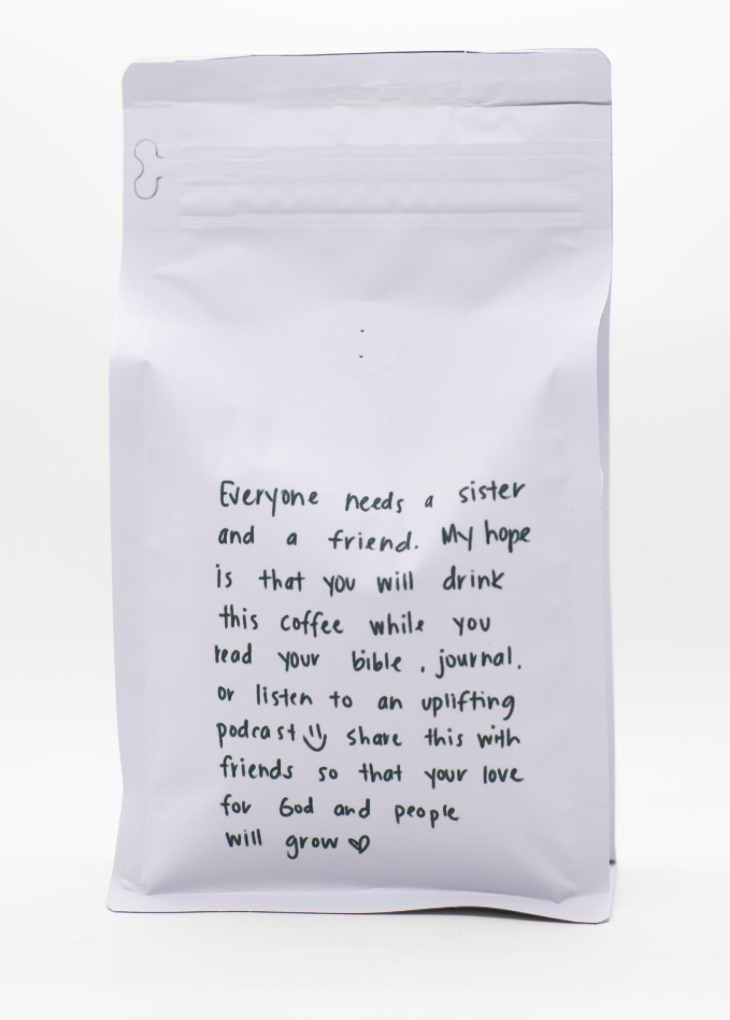 Everyone needs a sister
and a friend. My hope
is that you will drink
this coffee while you
read your bible, journal,
or listen to an uplifting
podcast share this with
friends so that your love
for God and people
will grow